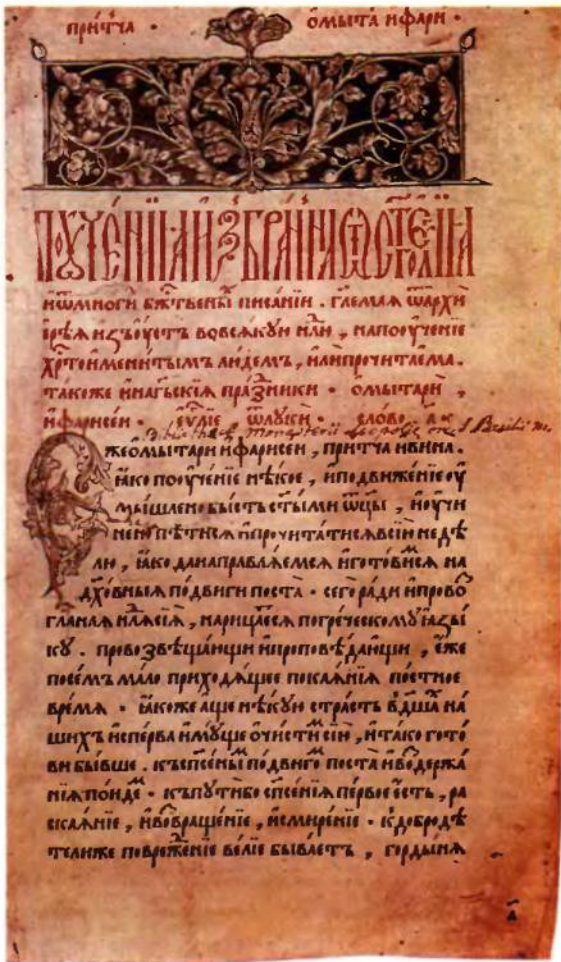 притча · ѡмыта и҆фари ·
поꙋче́нїѧ и҆збра́ннаѧ ѿ ст҃го є҆ѵ҃лїа
и҆ѿмноги бж҃твены писа́нїи . гл҃емаѧ ѿархи
е҆ре́ѧ и҆зъꙋ҆стъ вовсѧкꙋю нл҃ю , напооуче́нїе
хрⷭ҇тои́мени́тымъ лю́демъ , и҆лѝпрочита́ема .
та́коже и҆нагьскїѧ пра́здники · ѡ҆мытарѝ ,
и҆фарисе́и · є҆ѵ҃лїе ѿлꙋкѝ · сло́во , а҃ ·
Ꙗ҆́же ѡ҆мытари и҆фарисе́и , при́тча и҆вина .
ꙗ҆́ко пооуче́нїе нѣ́кое , и҆подвиже́нїе оу҆
мы́шлено бы́сть ст҃ыми ѿц҃ы , и҆оу҆чи
не́но пѣ́тисѧ и҆прочита́тисѧ всїю недѣ́
лю , ꙗ҆́ко да направлѧ́емсѧ и҆гото́вимсѧ на
дх҃о́вныѧ по́двиги поста̀ · сего̀ ра́ди и҆прово
гла́наѧ нлѧ̀сїѧ̀ , нарица́етсѧ погре́ческомꙋ ꙗ҆зы́
кꙋ . провозвѣща́ющи и҆проповѣ́дающи , є҆́же
посе́мъ ма́ло приходѧ́щее покаѧ́нїѧ по́стное
вре́мѧ · ꙗ҆́коже а҆́ще нѣ́кꙋю стра́сть в дш҃а́ на́
шихъ и҆спе́рва и҆мꙋ́ще ѡ҆чи́стим сїю̀ , и҆та́ко гото́
ви бы́вше . къспⷭ҇е́нымъ по́двигомъ поста̀ и҆воздержа́
нїѧ по́идемъ · къпꙋти́ бо сп҃се́нїѧ пе́рвое є҆́сть , ра
скаѧ́нїе , и҆возвраще́нїе , и҆смире́нїе · къдобродѣ́
те́лиже повреже́нїе ве́лїе быва́етъ , горды́нѧ